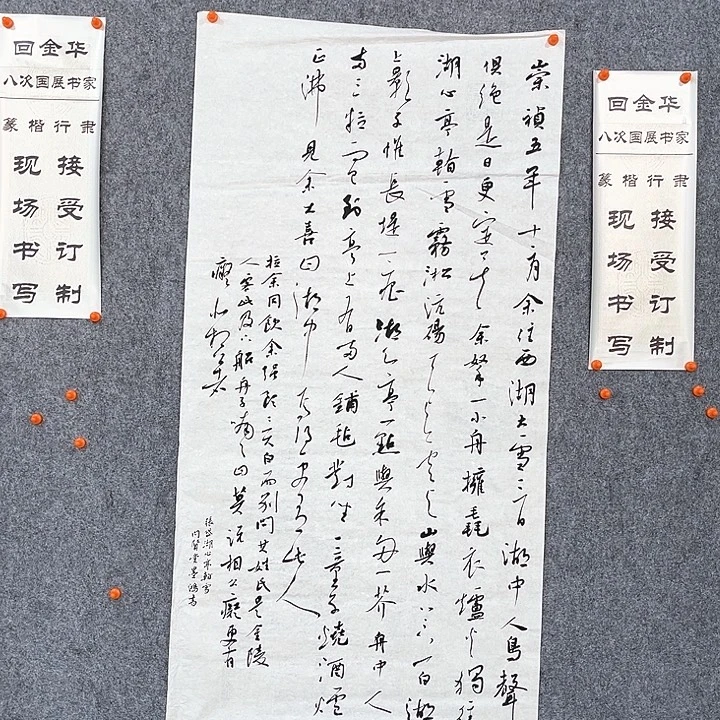 崇禎五年十二月余住西湖大雪三日湖中人鳥聲
俱絕是日更定矣余拏一小舟擁毳衣爐火獨往
湖心亭看雪霧淞沆碭天與雲與山與水上下一白湖
上影子惟長堤一痕湖心亭一點與余舟一芥舟中人
兩三粒而已到亭上有兩人鋪氈對坐一童子燒酒爐
正沸見余大喜曰湖中焉得更有此人
拉余同飲余強飲三大白而別問其姓氏是金陵
人客此及下船舟子喃喃曰莫說相公癡更有
癡似相公者
張岱湖心亭看雪
回金华
八次国展书家
篆楷行隶
现场书写
接受订制
回金华
八次国展书家
篆楷行隶
现场书写
接受订制